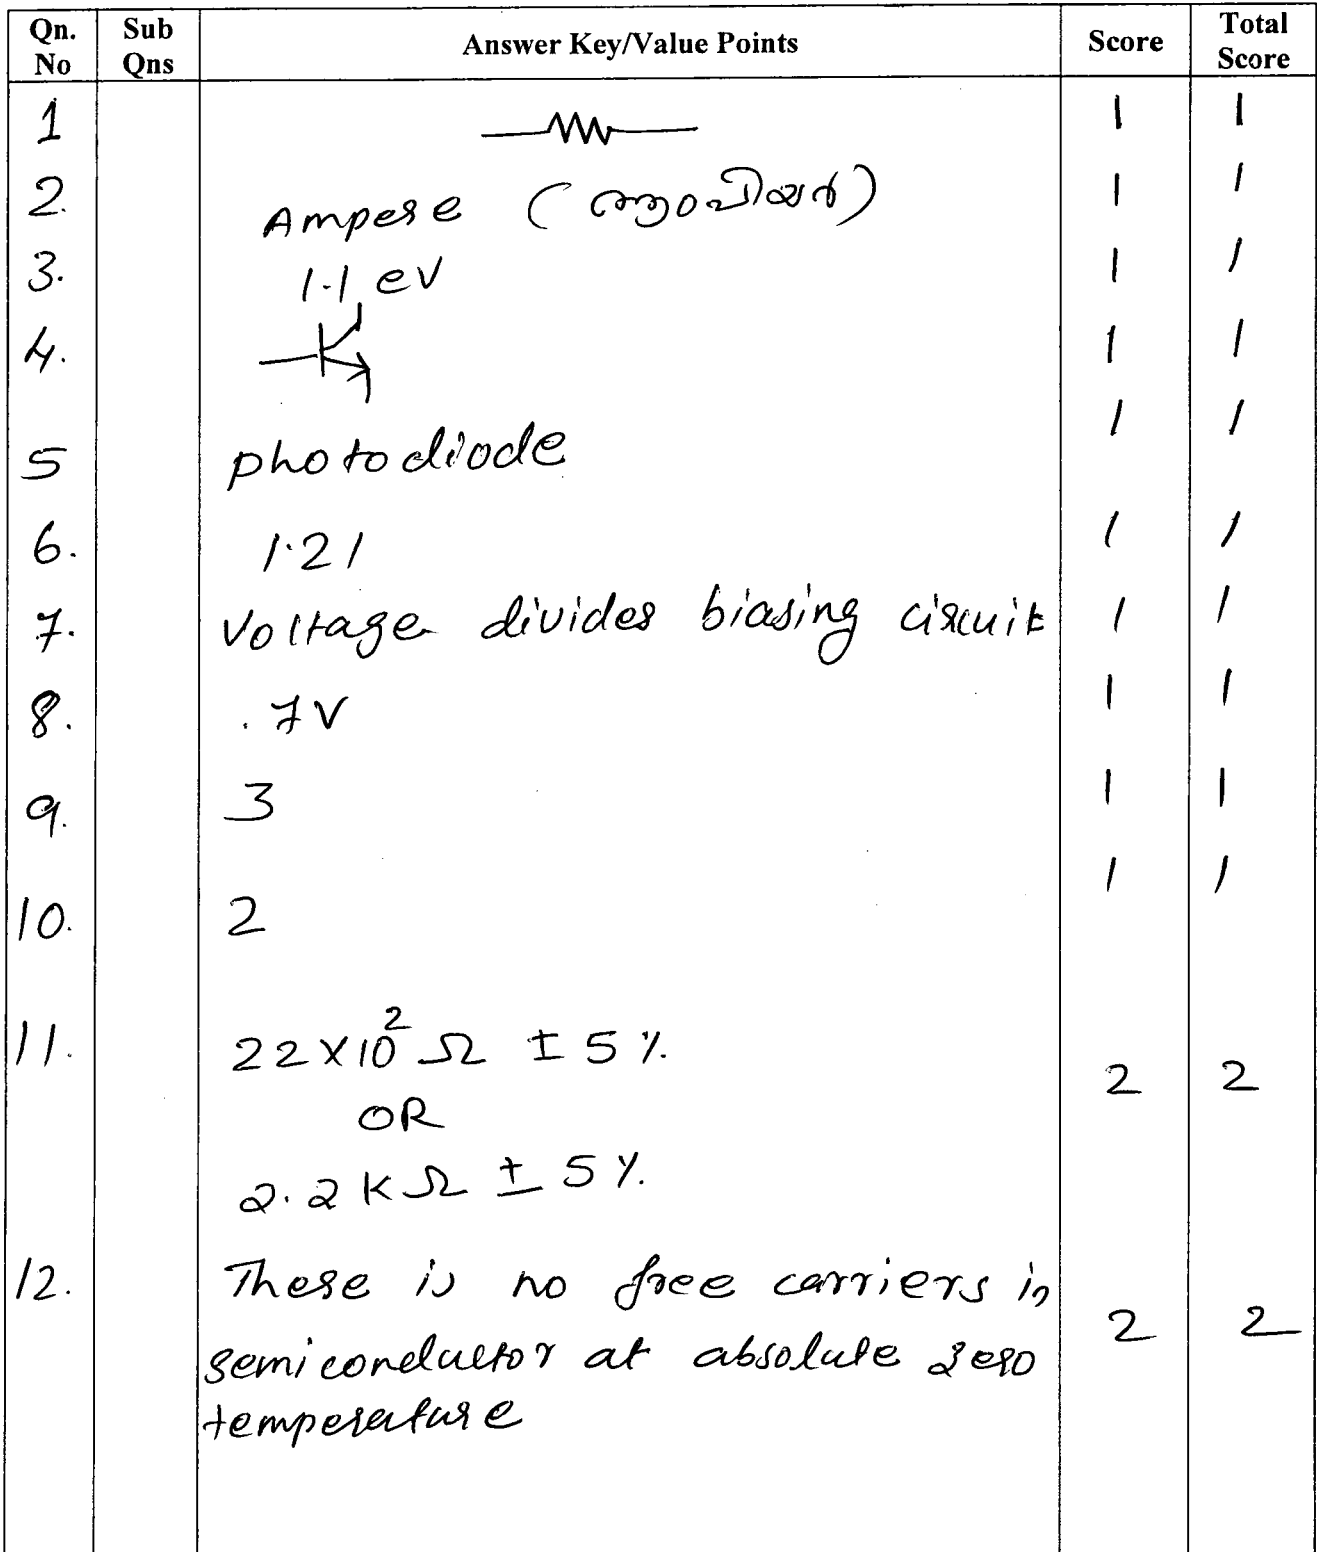 Qn. No Sub Qns Answer Key/Value Points Score Total Score
1 1 1
2. Ampere (ആംപിയർ) 1 1
3. 1.1 eV 1 1
4. 1 1
5 photodiode 1 1
6. 1.21 1 1
7. Voltage divider biasing circuit 1 1
8. .7V 1 1
9. 3 1 1
10. 2 1 1
11. 22×10² Ω ± 5 % 2 2
OR
2.2 KΩ ± 5 %.
12. There is no free carriers in 2 2
semiconductor at absolute zero
temperature